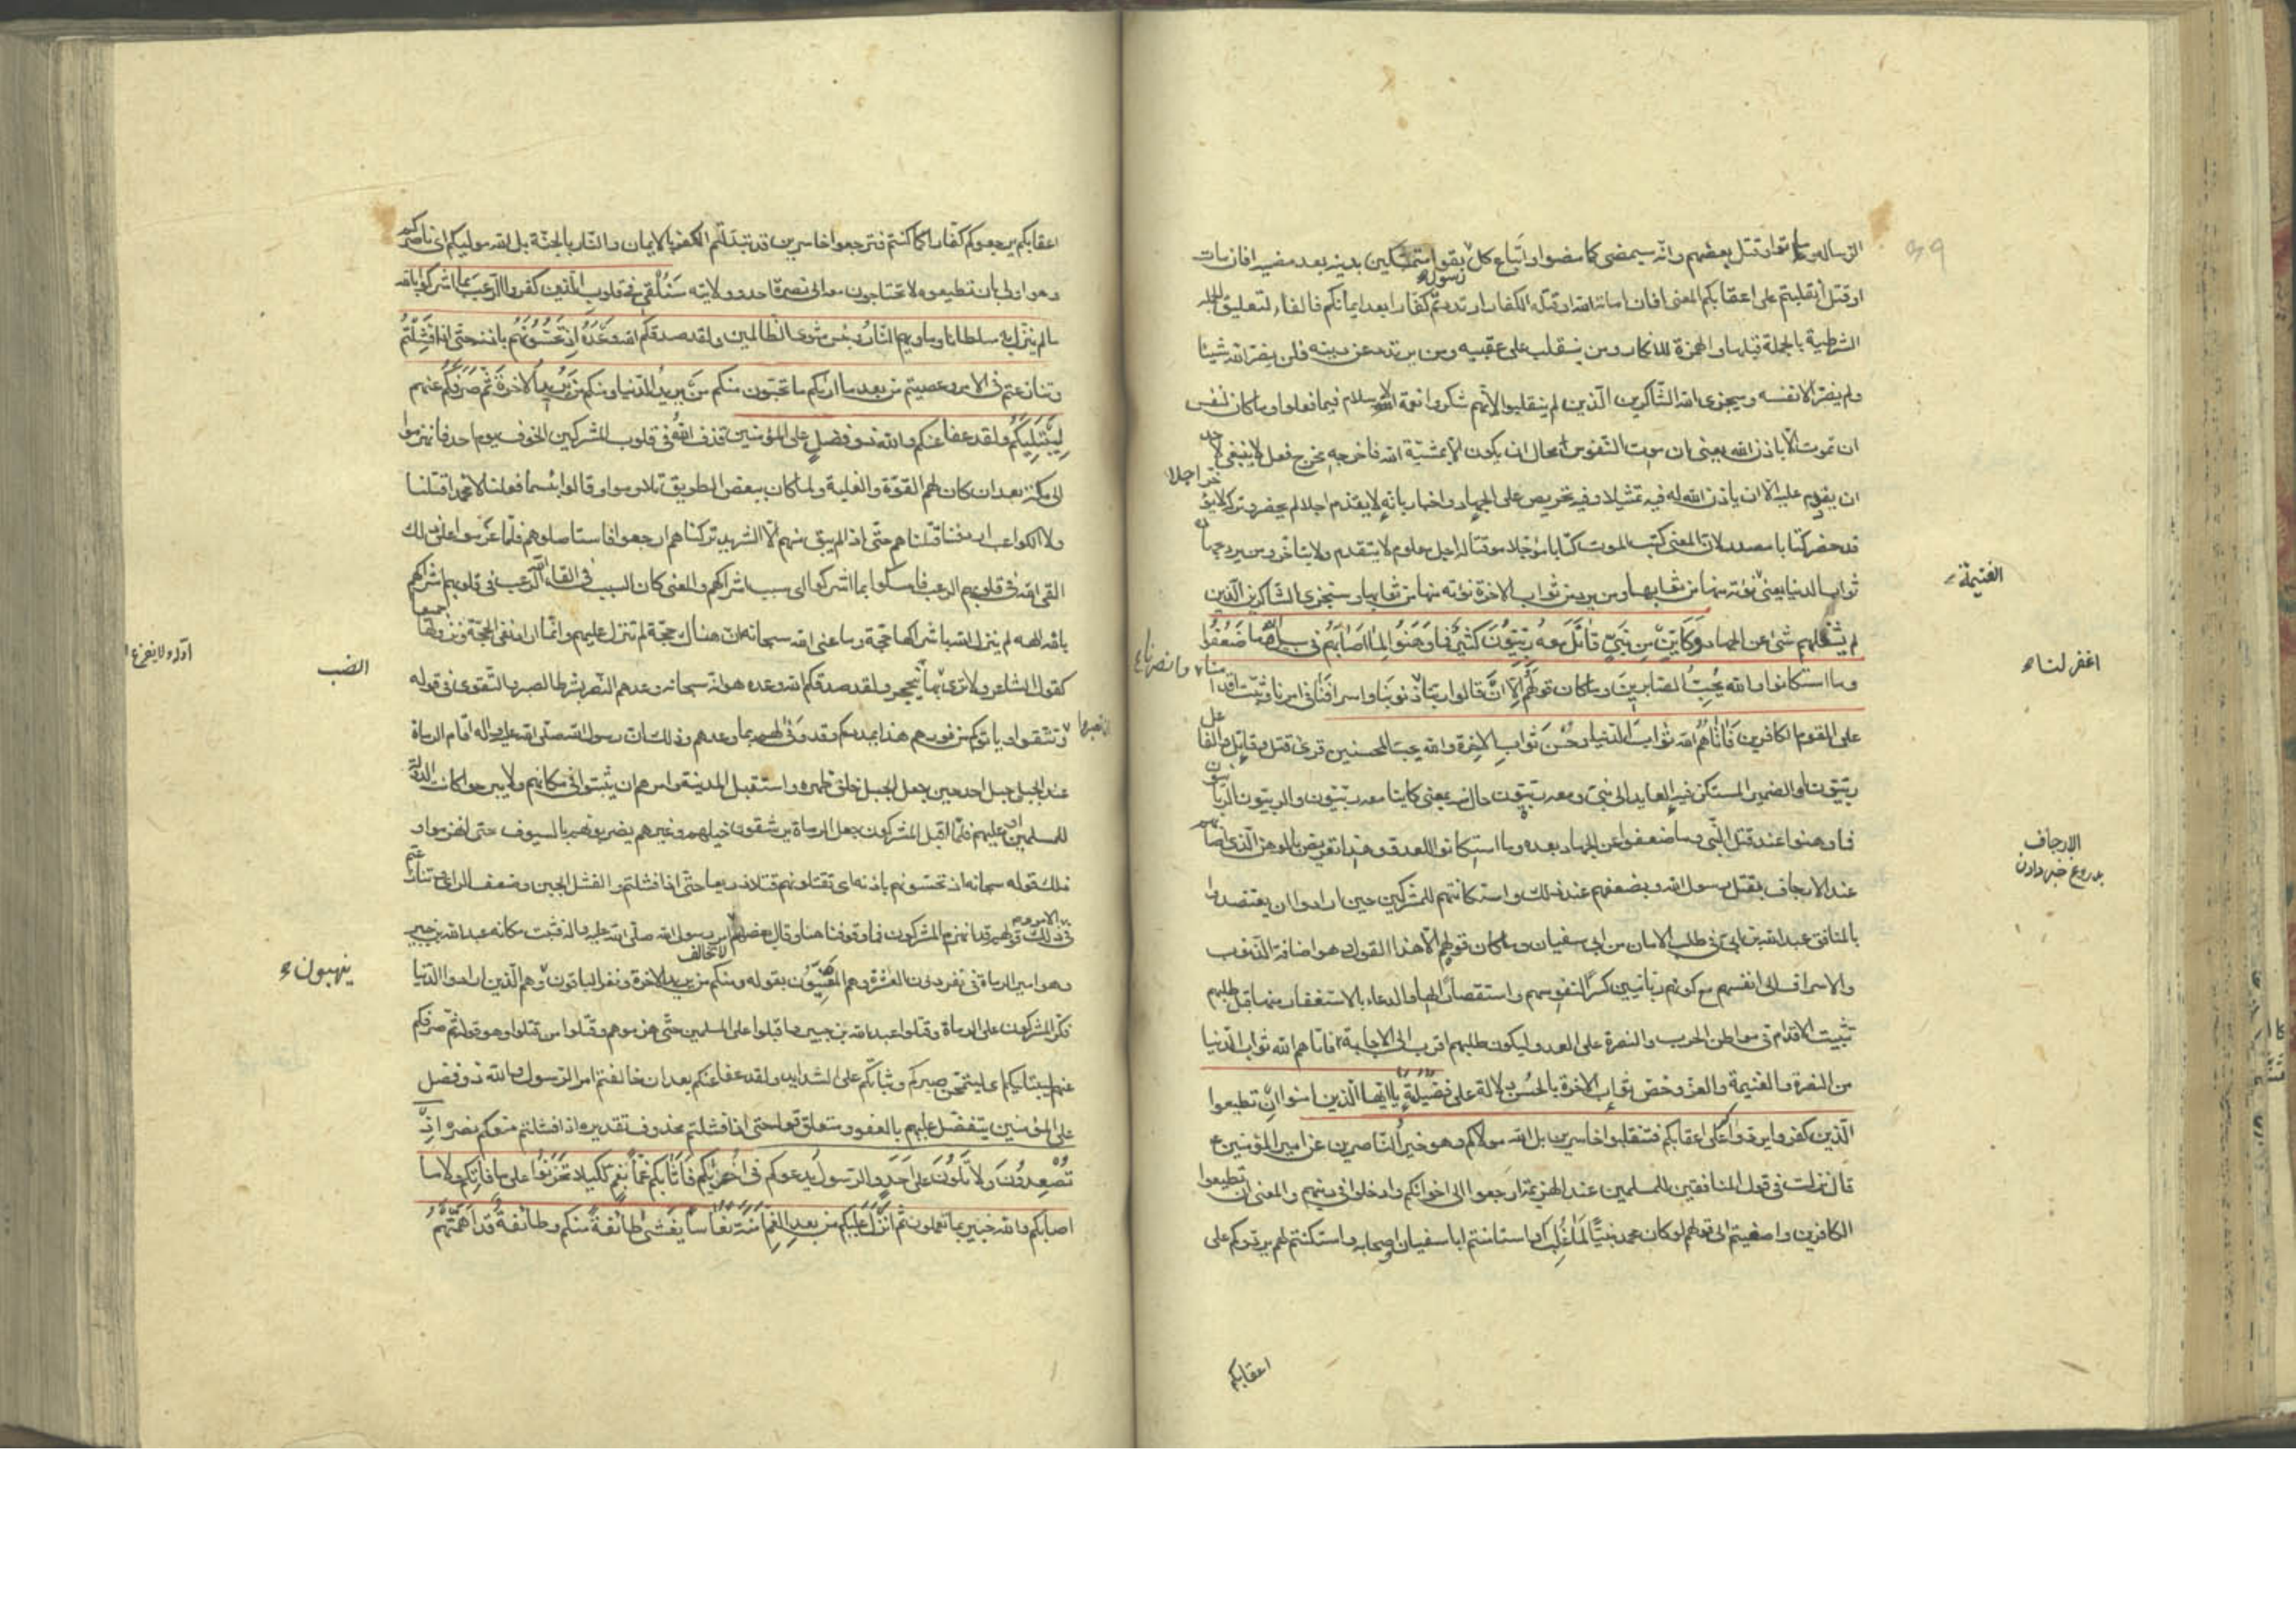 الرسالة وماتوا وقتل بعضهم وانه سيمضى كما مضوا واتباع كل رسول بقوا متمسكين بدينه بعد مضيه افان مات
او قتل انقلبتم على اعقابكم المعنى افان اماته الله او قتله الكفار ارتددتم كفارا بعد ايمانكم فالفاء لتعليق الجملة
الشرطية بالجملة قبلها والهمزة للانكار ومن ينقلب على عقبيه ومن يرتدد عن دينه فلن يضر الله شيئا
ولم يضر الا نفسه وسيجزى الله الشاكرين الذين لم ينقلبوا لانهم شكروا نعمة الاسلام فيما فعلوا وما كان لنفس
ان تموت الا باذن الله يعنى ان موت النفوس محال ان يكون الا بمشية الله فاخرجه مخرج فعل لا ينبغى لاحد
ان يقدم عليه الا ان ياذن الله له فيه تمثيلا وفيه تحريص على الجهاد واخبار بانه لا يقدم اجلا لم يحضر وتركه لا يؤخر اجلا
قد حضر كتابا مصدر لان المعنى كتب الموت كتابا مؤجلا موقتا له اجل معلوم لا يتقدم ولا يتاخر ومن يرد بجهاده
ثواب الدنيا يعنى الغنيمة نؤته منها من ثوابها ومن يرد ثواب الاخرة نؤته منها من ثوابها وسنجزى الشاكرين الذين
لم يشغلهم شئ عن الجهاد وكاين من نبى قاتل معه ربيون كثير فما وهنوا لما اصابهم فى سبيل الله وما ضعفوا
وما استكانوا والله يحب الصابرين وما كان قولهم الا ان قالوا ربنا ذنوبنا واسرافنا فى امرنا وثبت اقدا
على القوم الكافرين فاتاهم الله ثواب الدنيا وحسن ثواب الاخرة والله يحب المحسنين قرئ قتل وقاتل والفاعل
ربيون او الضمير المستكن فيه العايد الى نبى ومعه ربيون حال منه بمعنى كاينا معه ربيون والربيون الربانيون
فما وهنوا عند قتل النبى وما ضعفوا عن الجهاد بعده وما استكانوا للعدو وهذا تعريض بالوهن الذى اصابهم
عند الارجاف بقتل رسول الله وبضعفهم عند ذلك واستكانتهم للمشركين حين ارادوا ان يعتضدوا
بالمنافق عبد الله بن ابى فى طلب الامان من ابى سفيان وما كان قولهم الا هذا القول وهو اضافة الذنوب
والاسراف الى انفسهم مع كونهم ربانيين كسرا لنفوسهم واستقصارا لها والدعاء بالاستغفار منها قبل طلبهم
تثبيت الاقدام فى مواطن الحرب والنصرة على العدو ليكون طلبهم اقرب الى الاجابة فاتاهم الله ثواب الدنيا
من النصرة والغنيمة والعز وخص ثواب الاخرة بالحسن دلالة على فضيلته يا ايها الذين امنوا ان تطيعوا
الذين كفروا يردوكم على اعقابكم فتنقلبوا خاسرين بل الله مولاكم وهو خير الناصرين عن امير المؤمنين ع
قال نزلت فى قول المنافقين للمسلمين عند الهزيمة ارجعوا الى اخوانكم وادخلوا فى دينهم والمعنى ان تطيعوا
الكافرين واصغيتم الى قولهم لو كان محمد نبيا لما غلب او استامنتم ابا سفيان واصحابه واستكنتم لهم يردوكم على
اعقابكم
الغنيمة
اغفر لنا
منا وانصرنا
الارجاف
دروغ خبر دادن
اعقابكم يرجعوكم كفارا كما كنتم فترجعوا خاسرين قد تبدلتم الكفر بالايمان والنار بالجنة بل الله موليكم اى ناصركم
وهو اولى بان تطيعوه لا تحتاجون معه الى نصرة احد وولايته سنلقى فى قلوب الذين كفروا الرعب بما اشركوا بالله
ما لم ينزل به سلطانا وماويهم النار وبئس مثوى الظالمين ولقد صدقكم الله وعده اذ تحسونهم باذنه حتى اذا فشلتم
وتنازعتم فى الامر وعصيتم من بعد ما اريكم ما تحبون منكم من يريد الدنيا ومنكم من يريد الاخرة ثم صرفكم عنهم
ليبتليكم ولقد عفا عنكم والله ذو فضل على المؤمنين قذف الله فى قلوب المشركين الخوف يوم احد فانهزموا
الى مكة بعد ان كان لهم القوة والغلبة ولما كان ببعض الطريق تلاوموا وقالوا بئسما فعلنا لا محمدا قتلنا
ولا الكواعب اردفنا قتلناهم حتى اذا لم يبق منهم الا الشريد تركناهم ارجعوا فاستاصلوهم فلما عزموا على ذلك
القى الله فى قلوبهم الرعب فامسكوا بما اشركوا اى بسبب اشراكهم والمعنى كان السبب فى القاء الله الرعب فى قلوبهم اشراكهم
بالله الهة لم ينزل الله باشراكها حجة وما عنى الله سبحانه ان هناك حجة لم تنزل عليهم وانما اراد نفى الحجة ونزولها جميعا
كقول الشاعر ولا ترى بها ينجحر ولقد صدقكم الله وعده هو انه سبحانه وعدهم النصر بشرط الصبر والتقوى فى قوله
وتتقوا وياتوكم من فورهم هذا يمددكم وقد وفى لهم بما وعدهم وذلك ان رسول الله صلى الله عليه واله اقام الرماة
عند الجبل جبل احد حين جعل الجبل خلف ظهره واستقبل المدينة وامرهم ان يثبتوا فى مكانهم ولا يبرحوا كانت الدولة
للمسلمين او عليهم فلما اقبل المشركون جعل الرماة يرشقون خيلهم وغيرهم يضربونهم بالسيوف حتى انهزموا و
ذلك قوله سبحانه اذ تحسونهم باذنه اى تقتلونهم قتلا ذريعا حتى اذا فشلتم والفشل الجبن وضعف الراى وتنازعتم
فى ذلك قولهم قد انهزم المشركون فما وقوفنا هنا وقال بعضهم لا نخالف امر رسول الله صلى الله عليه واله فثبت مكانه عبد الله بن جبير
وهو امير الرماة فى نفر دون العشرة وهم المعنيون بقوله ومنكم من يريد الاخرة ونفر الباقون وهم الذين ارادوا الدنيا
فكر المشركون على الرماة وقتلوا عبد الله بن جبير واقبلوا على المسلمين حتى هزموهم وقتلوا من قتلوا وهو قوله ثم صرفكم
عنهم ليبتليكم اى ليمتحن صبركم وثباتكم على الشدايد ولقد عفا عنكم بعد ان خالفتم امر الرسول والله ذو فضل
على المؤمنين يتفضل عليهم بالعفو ومتعلق قوله حتى اذا فشلتم محذوف تقديره اذا فشلتم منعكم نصره اذ
تصعدون ولا تلون على احد والرسول يدعوكم فى اخريكم فاثابكم غما بغم لكيلا تحزنوا على ما فاتكم ولا ما
اصابكم والله خبير بما تعملون ثم انزل عليكم من بعد الغم امنة نعاسا يغشى طائفة منكم وطائفة قد اهمتهم
ان تصبروا
الضب
ينهبون